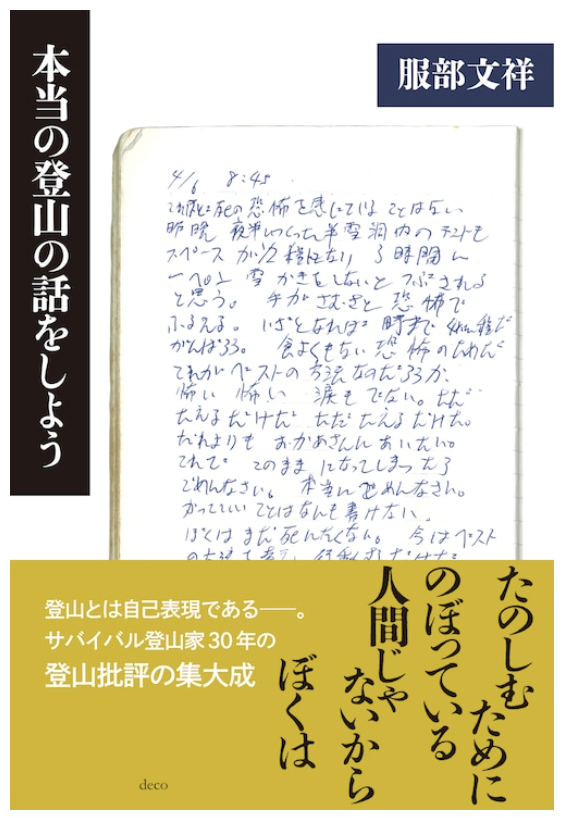 本当の登山の話をしよう
服部文祥
4/6 8:45
これほど死の恐怖を感じていることはない
昨晩 夜半につくった半雪洞内のテントも
スペースが1/2程になり 3時間に
一ペん 雪かきをしないと つぶされる
と思う。手がさむさと恐怖で
ふるえる。いざとなれば 時まで
がんばろう。食よくもない 恐怖のためだ
これがベストの方法なのだろうか、
怖い 怖い 涙もでない。ただ
たえるだけだ ただたえるだけだ。
だれよりも おかあさんに あいたい。
これで このまま になってしまったら
ごめんなさい。本当にごめんなさい。
かっていいことはなんも書けない、
ぼくは まだ死にたくない。今はベスト
たのしむために
のぼっている
人間じゃ
ないから
ぼくは
登山とは自己表現である——。
サバイバル登山家30年の
登山批評の集大成
deco